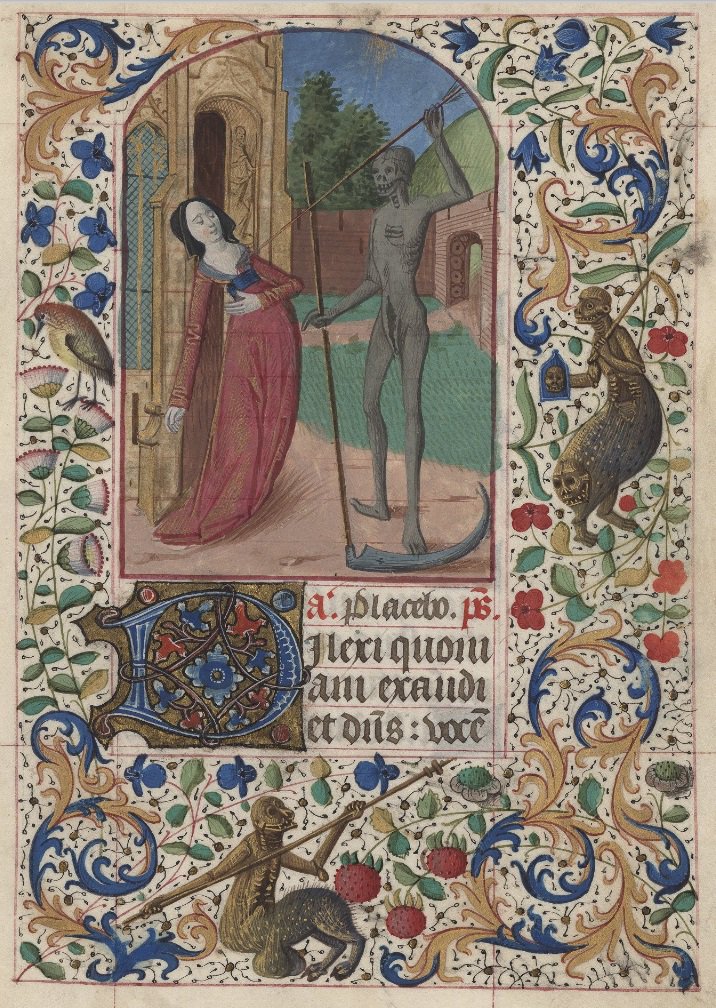 a͛. Placebo. p̅s̅.
DIlexi quoni
am exaudi
et dn̅s : voce̅